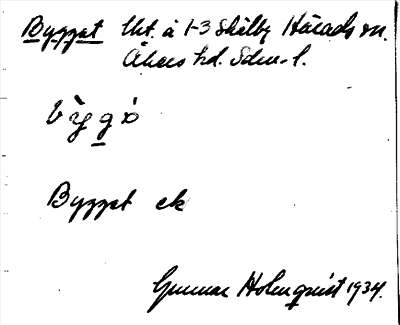 Bygget lht. å 1-3 Skälby Härads sn.
Åkers hd. Sdm. l.
b`yg ò
Bygget ek
Gunnar Holmquist 1934.